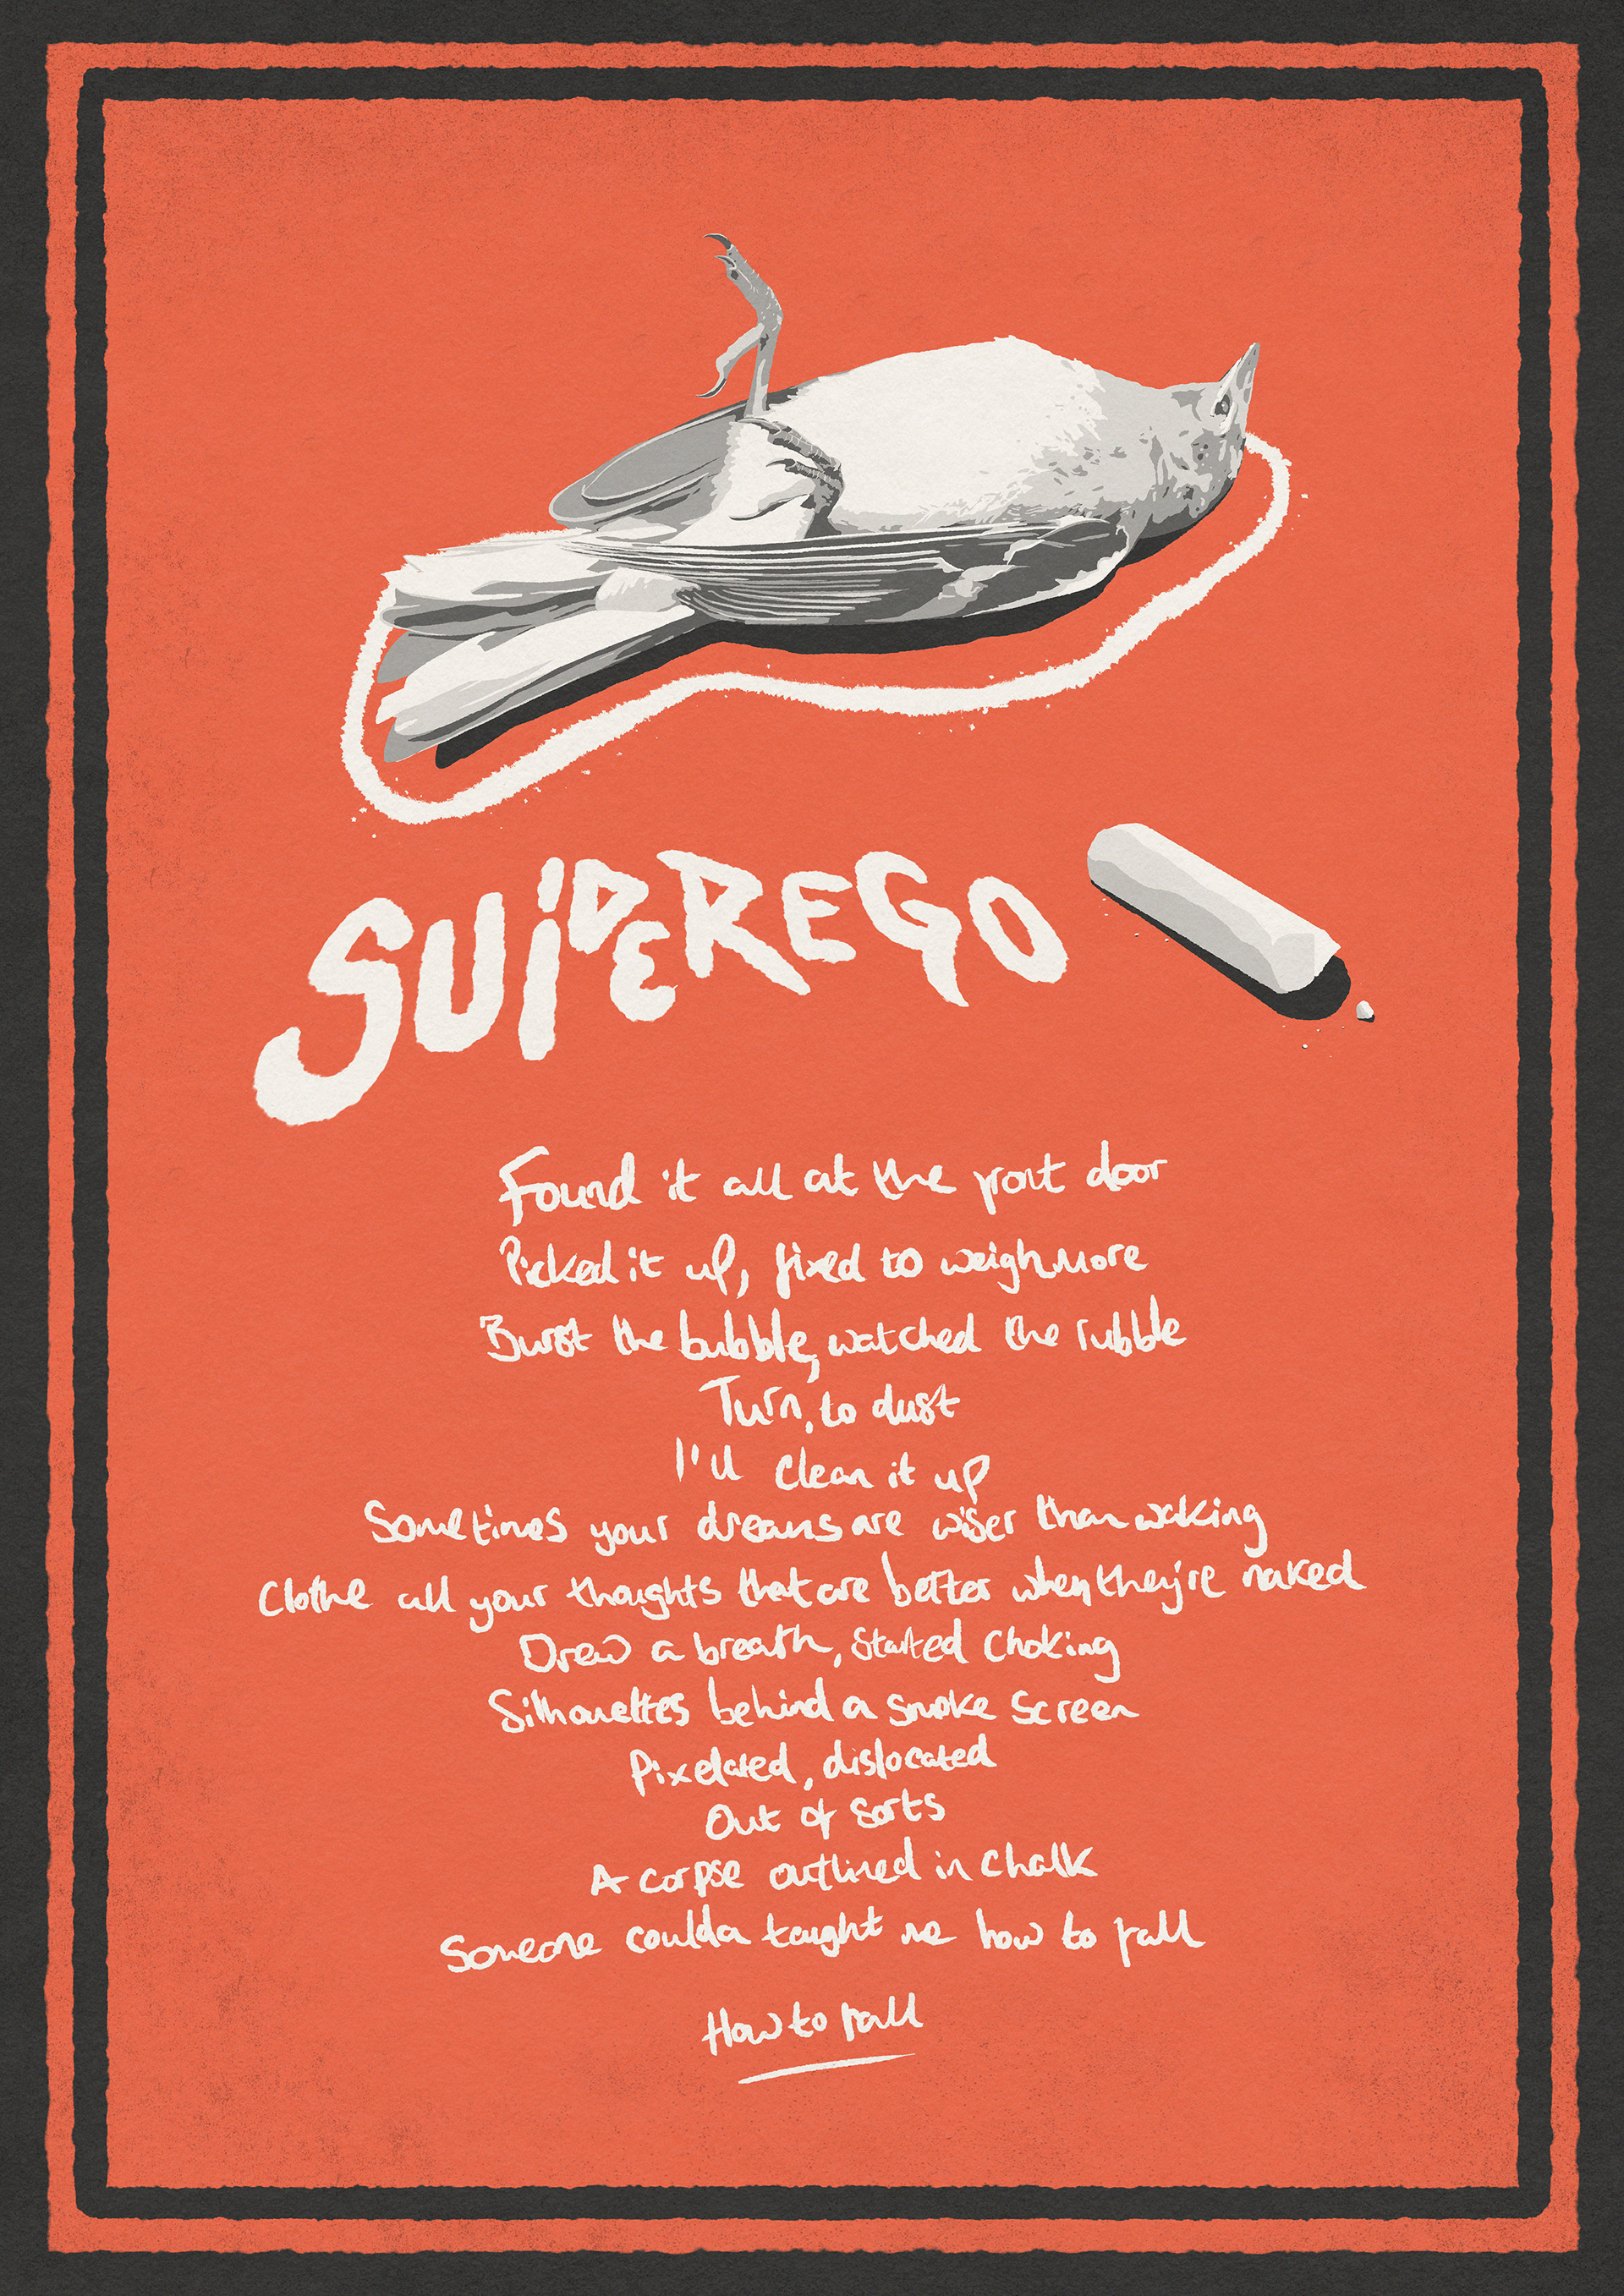 SUPEREGO
Found it all at the front door
Picked it up, fixed to weigh more
Burst the bubble, watched the rubble
Turn, to dust
I'll clean it up
Sometimes your dreams are wiser than waking
Clothe all your thoughts that are better when they're naked
Drew a breath, started choking
Silhouettes behind a smoke screen
Pixelated, dislocated
Out of sorts
A corpse outlined in chalk
Someone coulda taught me how to fall
How to fall